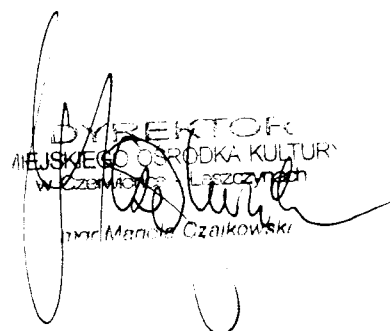 DYREKTOR
MIEJSKIEGO OŚRODKA KULTURY
w Czerwionce - Leszczynach
mgr Mariola Czajkowska